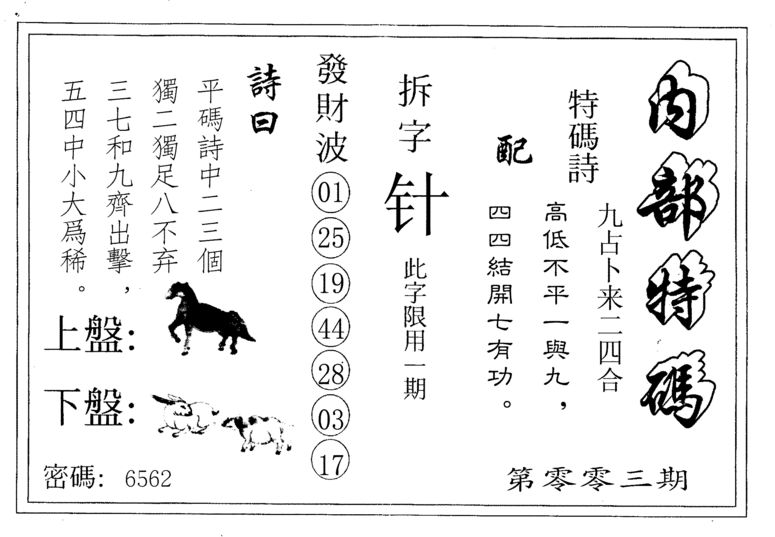 内部特碼
特碼詩
九占卜来二四合
配
高低不平一與九，
四四結開七有功。
第零零三期
拆字
针
此字限用一期
發財波
01
25
19
44
28
03
17
詩曰
平碼詩中二三個
獨二獨足八不弃
三七和九齊出擊，
五四中小大爲稀。
上盤：
下盤：
密碼：6562